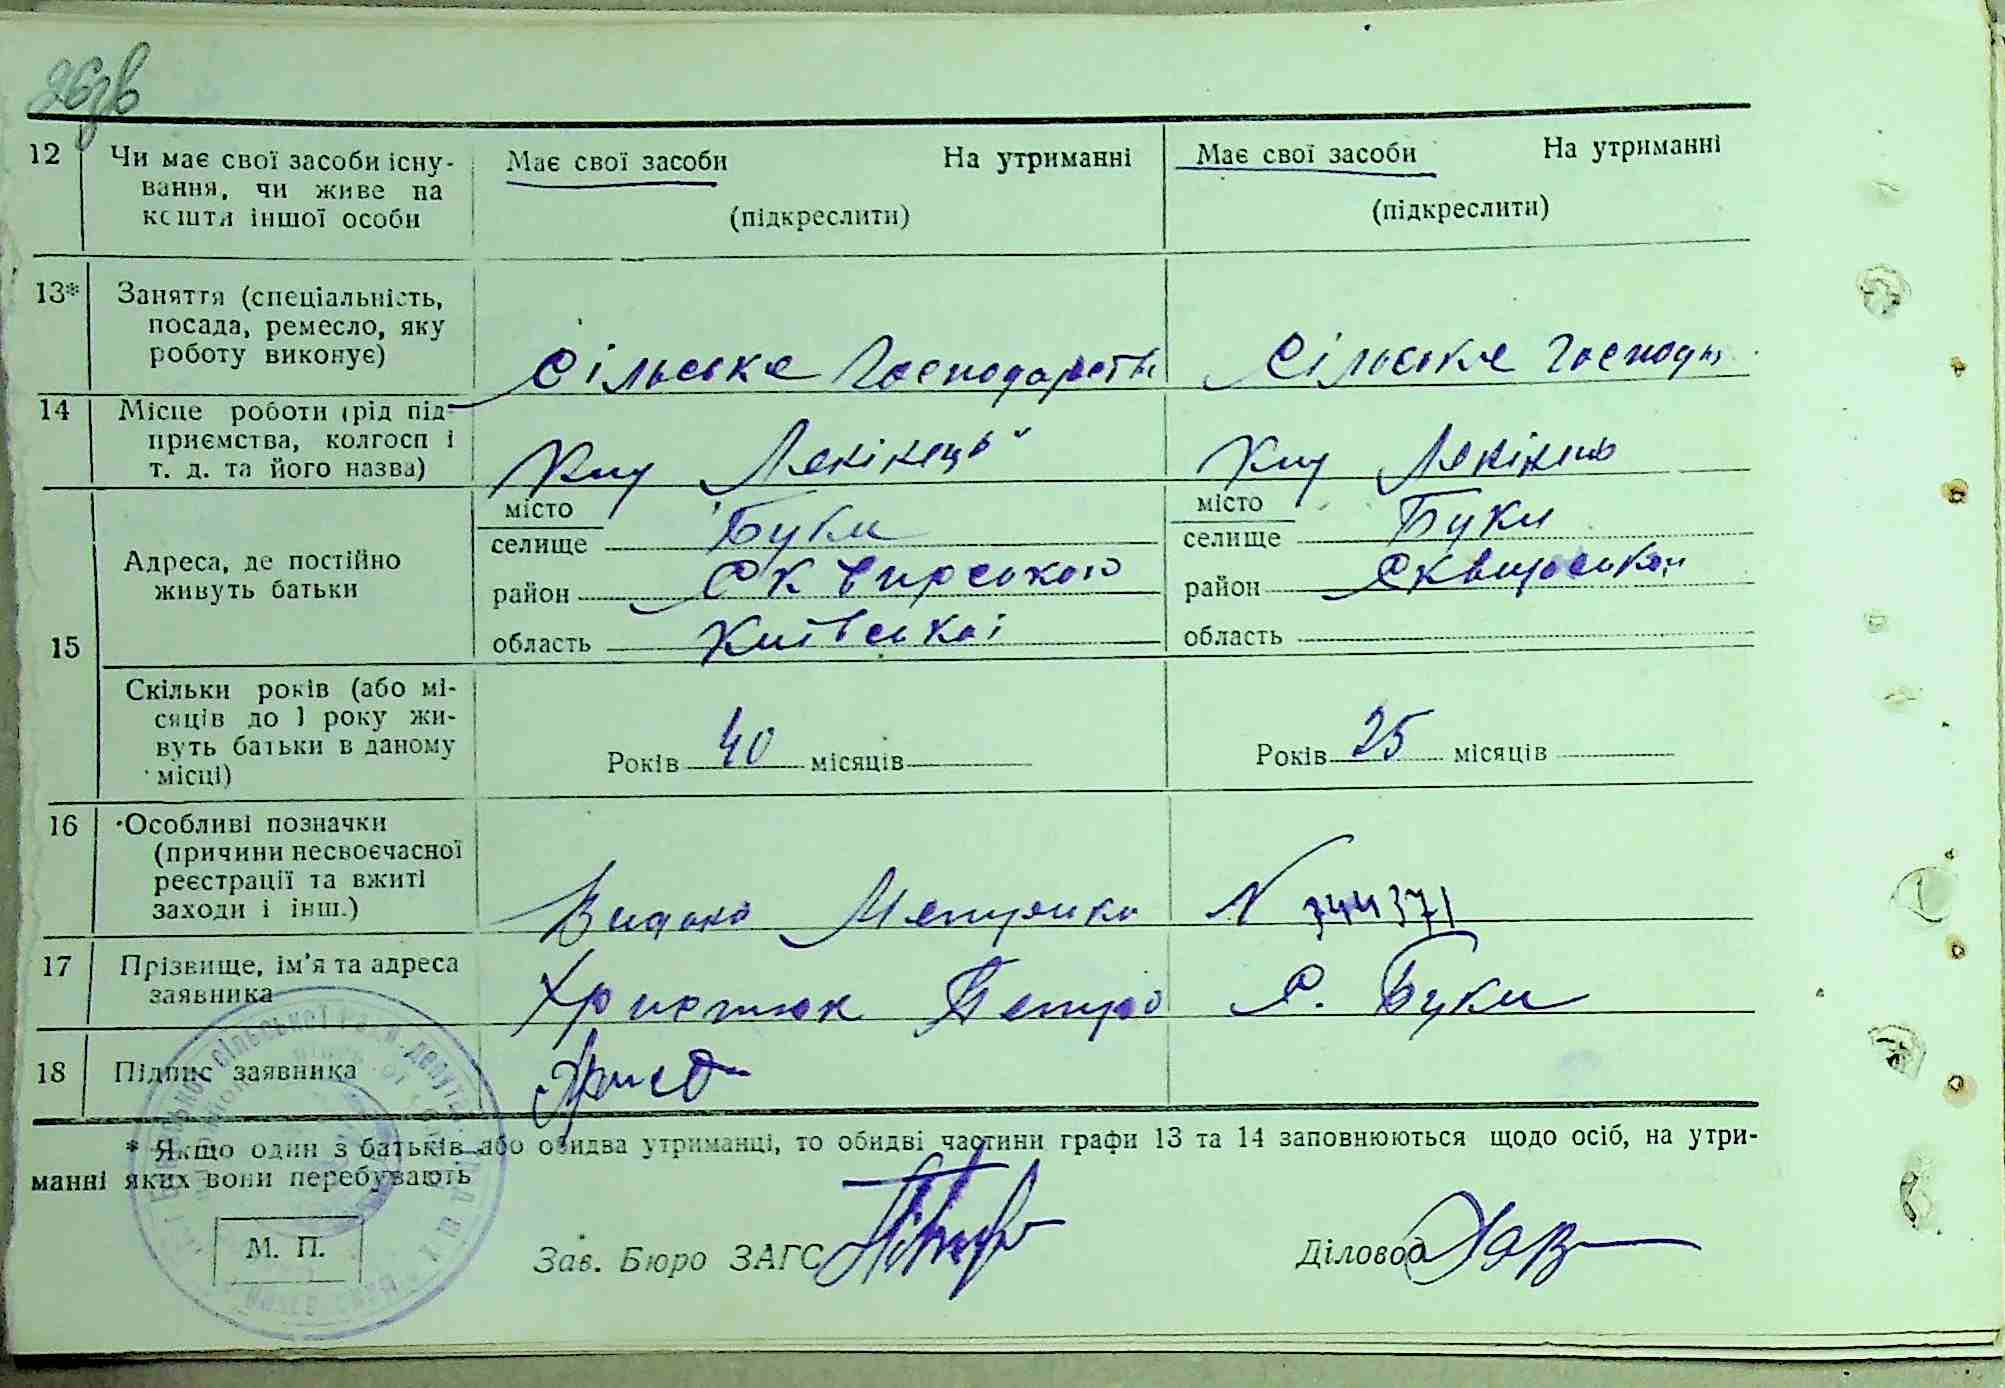 12 Чи має свої засоби існу-
вання, чи живе на
кошти іншої особи
Має свої засоби На утриманні
(підкреслити)
Має свої засоби На утриманні
(підкреслити)
13* Заняття (спеціальність,
посада, ремесло, яку
роботу виконує)
Сільське Господарств
Сільське Господ
14 Місце роботи (рід під-
приємства, колгосп і
т. д. та його назва)
15 Адреса, де постійно
живуть батьки
місто
селище Буки
район Сквирського
область Київської
місто
селище Буки
район Сквирський
область
Скільки років (або мі-
сяців до 1 року жи-
вуть батьки в даному
місці)
Років 40 місяців
Років 25 місяців
16 Особливі позначки
(причини несвоєчасної
реєстрації та вжиті
заходи і інш.)
Видана Метрика N 744371
17 Прізвище, ім'я та адреса
заявника
Христюк Петро С. Буки
18 Підпис заявника
* Якщо один з батьків або обидва утриманці, то обидві частини графи 13 та 14 заповнюються щодо осіб, на утри-
манні яких вони перебувають
М. П.
Зав. Бюро ЗАГС
Діловод